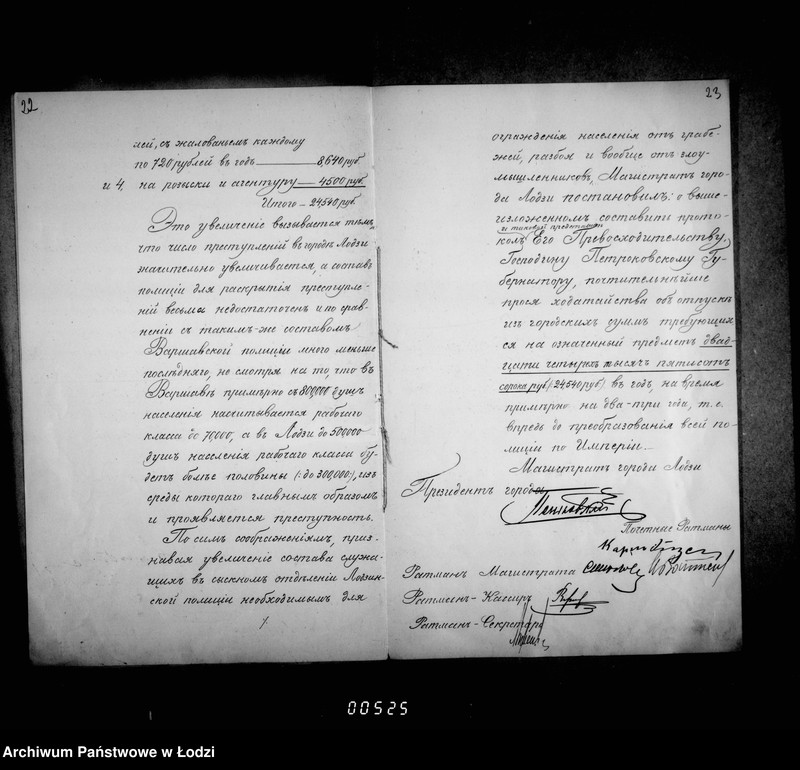 22
лей, съ жалованьемъ каждому
по 720 рублей въ годъ — 8,640 руб
и 4, на розыски и агентуру — 4500 руб.
Итого — 24,540 руб.
Это увеличеніе вызывается тѣмъ,
что число преступленій въ городѣ Лодзи
значительно увеличивается, а составъ
полиціи для раскрытія преступле-
ній весьма недостаточенъ и по срав-
ненію съ такимъ-же составомъ
Варшавской полиціи много меньше
послѣдняго, но смотря на то, что въ
Варшавѣ примѣрно съ 800,000 душъ
населенія насчитывается рабочаго
класса до 70,000, а въ Лодзи до 500000
душъ населенія рабочаго класса бу-
детъ болѣе половины (: до 300,000:), изъ
среды котораго главнымъ образомъ
и проявляется преступность.
По симъ соображеніямъ, приз-
навая увеличеніе состава служа-
щихъ въ сыскномъ отдѣленіи Лодзин-
ской полиціи необходимымъ для
23
огражденія населенія отъ грабе-
жей, разбоя и вообще отъ злоу-
мышленниковъ, Магистратъ горо-
да Лодзи постановилъ: о выше-
изложенномъ составить прото-
и таковой представить
колъ Его Превосходительству,
Господину Петроковскому Гу-
бернатору, почтительнѣйше
прося ходатайства объ отпускѣ
изъ городскихъ суммъ требующих-
ся на означенный предметъ двад-
цати четырехъ тысячъ пятисотъ
сорока руб. (: 24540 руб:) въ годъ, на время
примѣрно на два-три года, т. е.
впредь до преобразованія всей по-
лиціи по Имперіи.
Магистратъ города Лодзи
Президентъ города
Почетные Ратманы
Ратманъ Магистрата
Ратманъ-Кассиръ
Ратманъ-Секретарь
00525
Archiwum Państwowe w Łodzi